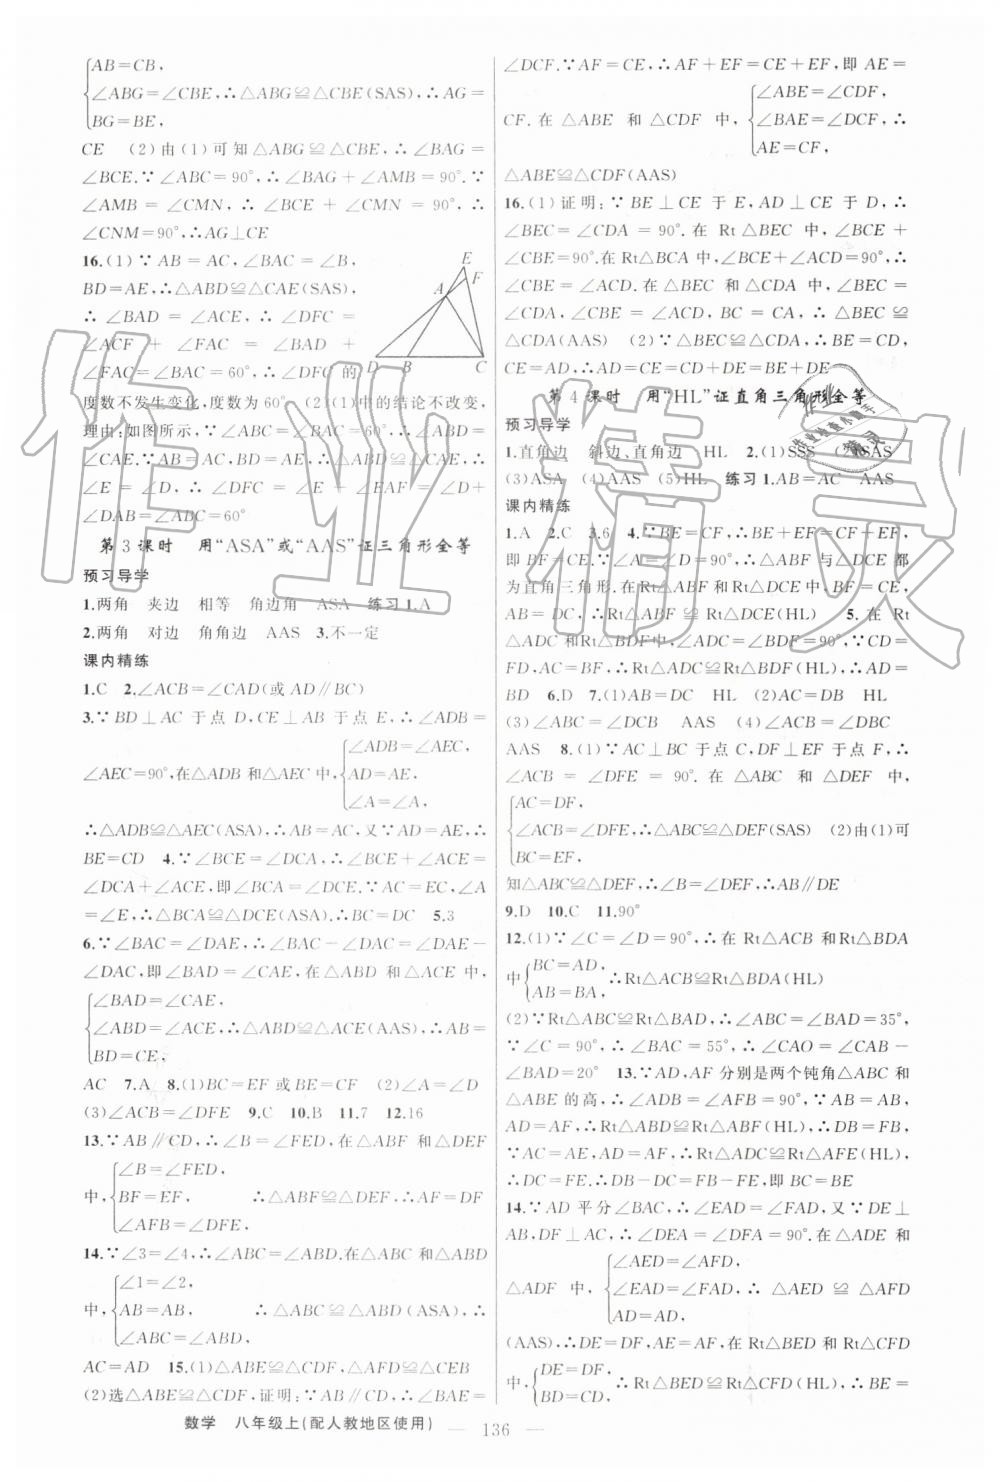 AB=CB,
∠ABG=∠CBE,∴△ABG≌△CBE(SAS),∴AG=
BG=BE,
CE (2)由(1)可知△ABG≌△CBE,∴∠BAG=
∠BCE.∵∠ABC=90°,∴∠BAG+∠AMB=90°.∵
∠AMB=∠CMN,∴∠BCE+∠CMN=90°,∴
∠CNM=90°,∴AG⊥CE
16.(1)∵AB=AC,∠BAC=∠B,
BD=AE,∴△ABD≌△CAE(SAS),
∴∠BAD=∠ACE,∴∠DFC=
∠ACF+∠FAC=∠BAD+
∠FAC=∠BAC=60°,∴∠DFC的
度数不发生变化,度数为60° (2)(1)中的结论不改变,
理由:如图所示,∵∠BAC=∠ABC=60°,∴∠ABD=
∠CAE.∵AB=AC,BD=AE,∴△ABD≌△CAE,∴
∠E=∠D,∴∠DFC=∠E+∠EAF=∠D+
∠DAB=∠ABC=60°
E
F
A
D B C
第3课时 用“ASA”或“AAS”证三角形全等
预习导学
1.两角 夹边 相等 角边角 ASA 练习1.A
2.两角 对边 角角边 AAS 3.不一定
课内精练
1.C 2.∠ACB=∠CAD(或AD∥BC)
3.∵BD⊥AC于点D,CE⊥AB于点E,∴∠ADB=
∠AEC=90°,在△ADB和△AEC中,
∠ADB=∠AEC,
AD=AE,
∠A=∠A,
∴△ADB≌△AEC(ASA),∴AB=AC,又∵AD=AE,∴
BE=CD 4.∵∠BCE=∠DCA,∴∠BCE+∠ACE=
∠DCA+∠ACE,即∠BCA=∠DCE.∵AC=EC,∠A
=∠E,∴△BCA≌△DCE(ASA).∴BC=DC 5.3
6.∵∠BAC=∠DAE,∴∠BAC-∠DAC=∠DAE-
∠DAC,即∠BAD=∠CAE,在△ABD和△ACE中,
∠BAD=∠CAE,
∠ABD=∠ACE,∴△ABD≌△ACE(AAS),∴AB=
BD=CE,
AC 7.A 8.(1)BC=EF或BE=CF (2)∠A=∠D
(3)∠ACB=∠DFE 9.C 10.B 11.7 12.16
13.∵AB∥CD,∴∠B=∠FED,在△ABF和△DEF
中,
∠B=∠FED,
BF=EF,
∠AFB=∠DFE,
∴△ABF≌△DEF,∴AF=DF
14.∵∠3=∠4,∴∠ABC=∠ABD.在△ABC和△ABD
中,
∠1=∠2,
AB=AB,
∠ABC=∠ABD,
∴△ABC≌△ABD(ASA),∴
AC=AD 15.(1)△ABE≌△CDF,△AFD≌△CEB
(2)选△ABE≌△CDF,证明:∵AB∥CD,∴∠BAE=
∠DCF.∵AF=CE,∴AF+EF=CE+EF,即AE=
CF.在△ABE和△CDF中,
∠ABE=∠CDF,
∠BAE=∠DCF,∴
AE=CF,
△ABE≌△CDF(AAS)
16.(1)证明:∵BE⊥CE于E,AD⊥CE于D,∴
∠BEC=∠CDA=90°.在Rt△BEC中,∠BCE+
∠CBE=90°.在Rt△BCA中,∠BCE+∠ACD=90°.∴
∠CBE=∠ACD.在△BEC和△CDA中,∠BEC=
∠CDA,∠CBE=∠ACD,BC=CA,∴△BEC≌
△CDA(AAS) (2)∵△BEC≌△CDA,∴BE=CD,
CE=AD,∴AD=CE=CD+DE=BE+DE
第4课时 用“HL”证直角三角形全等
预习导学
1.直角边 斜边、直角边 HL 2.(1)SSS (2)SAS
(3)ASA (4)AAS (5)HL 练习1.AB=AC AAS
课内精练
1.A 2.C 3.6 4.∵BE=CF,∴BE+EF=CF+EF,
即BF=CE.∵∠A=∠D=90°,∴△ABF与△DCE都
为直角三角形.在Rt△ABF和Rt△DCE中,BF=CE,
AB=DC,∴Rt△ABF≌Rt△DCE(HL) 5.在Rt
△ADC和Rt△BDF中,∠ADC=∠BDF=90°,∵CD=
FD,AC=BF,∴Rt△ADC≌Rt△BDF(HL),∴AD=
BD 6.D 7.(1)AB=DC HL (2)AC=DB HL
(3)∠ABC=∠DCB AAS (4)∠ACB=∠DBC
AAS 8.(1)∵AC⊥BC于点C,DF⊥EF于点F,∴
∠ACB=∠DFE=90°.在△ABC和△DEF中,
AC=DF,
∠ACB=∠DFE,∴△ABC≌△DEF(SAS) (2)由(1)可
BC=EF,
知△ABC≌△DEF,∴∠B=∠DEF,∴AB∥DE
9.D 10.C 11.90°
12.(1)∵∠C=∠D=90°,∴在Rt△ACB和Rt△BDA
中
BC=AD,
AB=BA,
∴Rt△ACB≌Rt△BDA(HL)
(2)∵Rt△ABC≌Rt△BAD,∴∠ABC=∠BAD=35°,
∵∠C=90°,∴∠BAC=55°,∴∠CAO=∠CAB-
∠BAD=20° 13.∵AD,AF分别是两个钝角△ABC和
△ABE的高,∴∠ADB=∠AFB=90°,∵AB=AB,
AD=AF,∴Rt△ABD≌Rt△ABF(HL),∴DB=FB,
∵AC=AE,AD=AF,∴Rt△ADC≌Rt△AFE(HL),
∴DC=FE.∴DB-DC=FB-FE,即BC=BE
14.∵AD平分∠BAC,∴∠EAD=∠FAD,又∵DE⊥
AB,DF⊥AC,∴∠DEA=∠DFA=90°.在△ADE和
△ADF中,
∠AED=∠AFD,
∠EAD=∠FAD,∴△AED≌△AFD
AD=AD,
(AAS),∴DE=DF,AE=AF,在Rt△BED和Rt△CFD
中,
DE=DF,
BD=CD,
∴Rt△BED≌Rt△CFD(HL),∴BE=
数学 八年级上(配人教地区使用) — 136 —
作业精灵